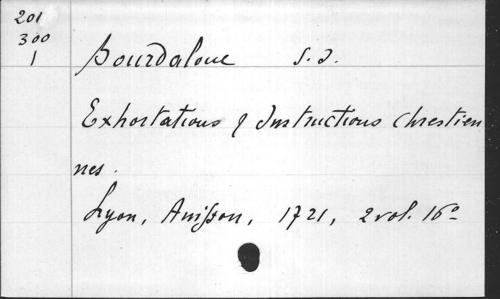 201
300
1
Bourdaloue S. J.
Exhortations & Instructions Chrestien
nes.
Lyon, Anisson, 1721, 2 vol. 16º